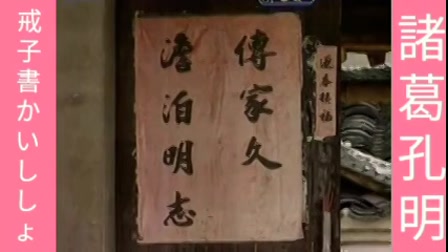 諸葛孔明
迎春接福
傳家久
澹泊明志
戒子書かいししょ